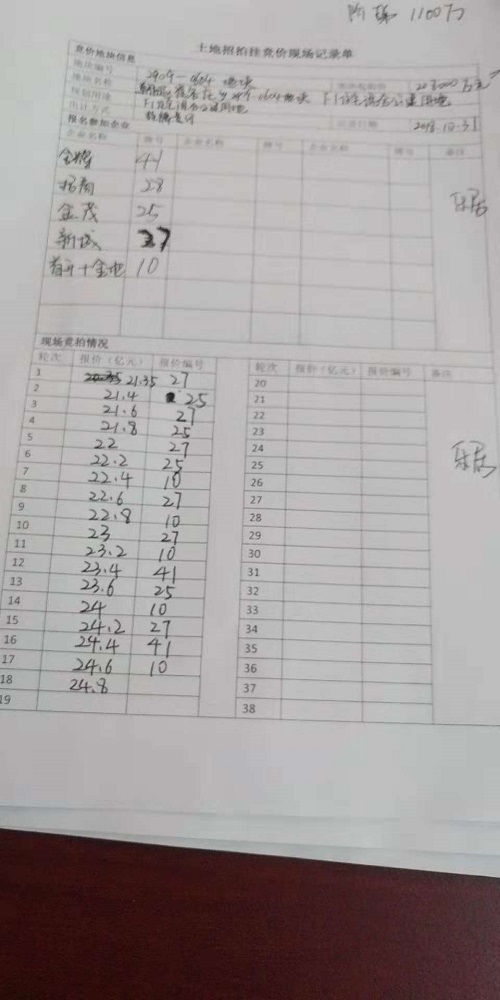 阶梯 1100万
土地招拍挂竞价现场记录单
竞价地块信息
地块编号 2909-0604 地块
地块名称
规划用途 F1住宅混合公建用地
出让方式 挂牌竞价 2018.10.31
报名参加企业
企业名称 牌号 企业名称 牌号 企业名称 牌号 备注
金辉 41
招商 28
金茂 25
新城 27
首开+金地 10
乐居
现场竞拍情况
轮次 报价(亿元) 报价编号 轮次 报价(亿元) 报价编号 备注
1 21.35 27 20
2 21.4 25 21
3 21.6 27 22
4 21.8 25 23
5 22 27 24
6 22.2 25 25
7 22.4 10 26
8 22.6 27 27
9 22.8 10 28
10 23 27 29
11 23.2 10 30
12 23.4 41 31
13 23.6 25 32
14 24 10 33
15 24.2 27 34
16 24.4 41 35
17 24.6 10 36
18 24.8 37
19 38
乐居